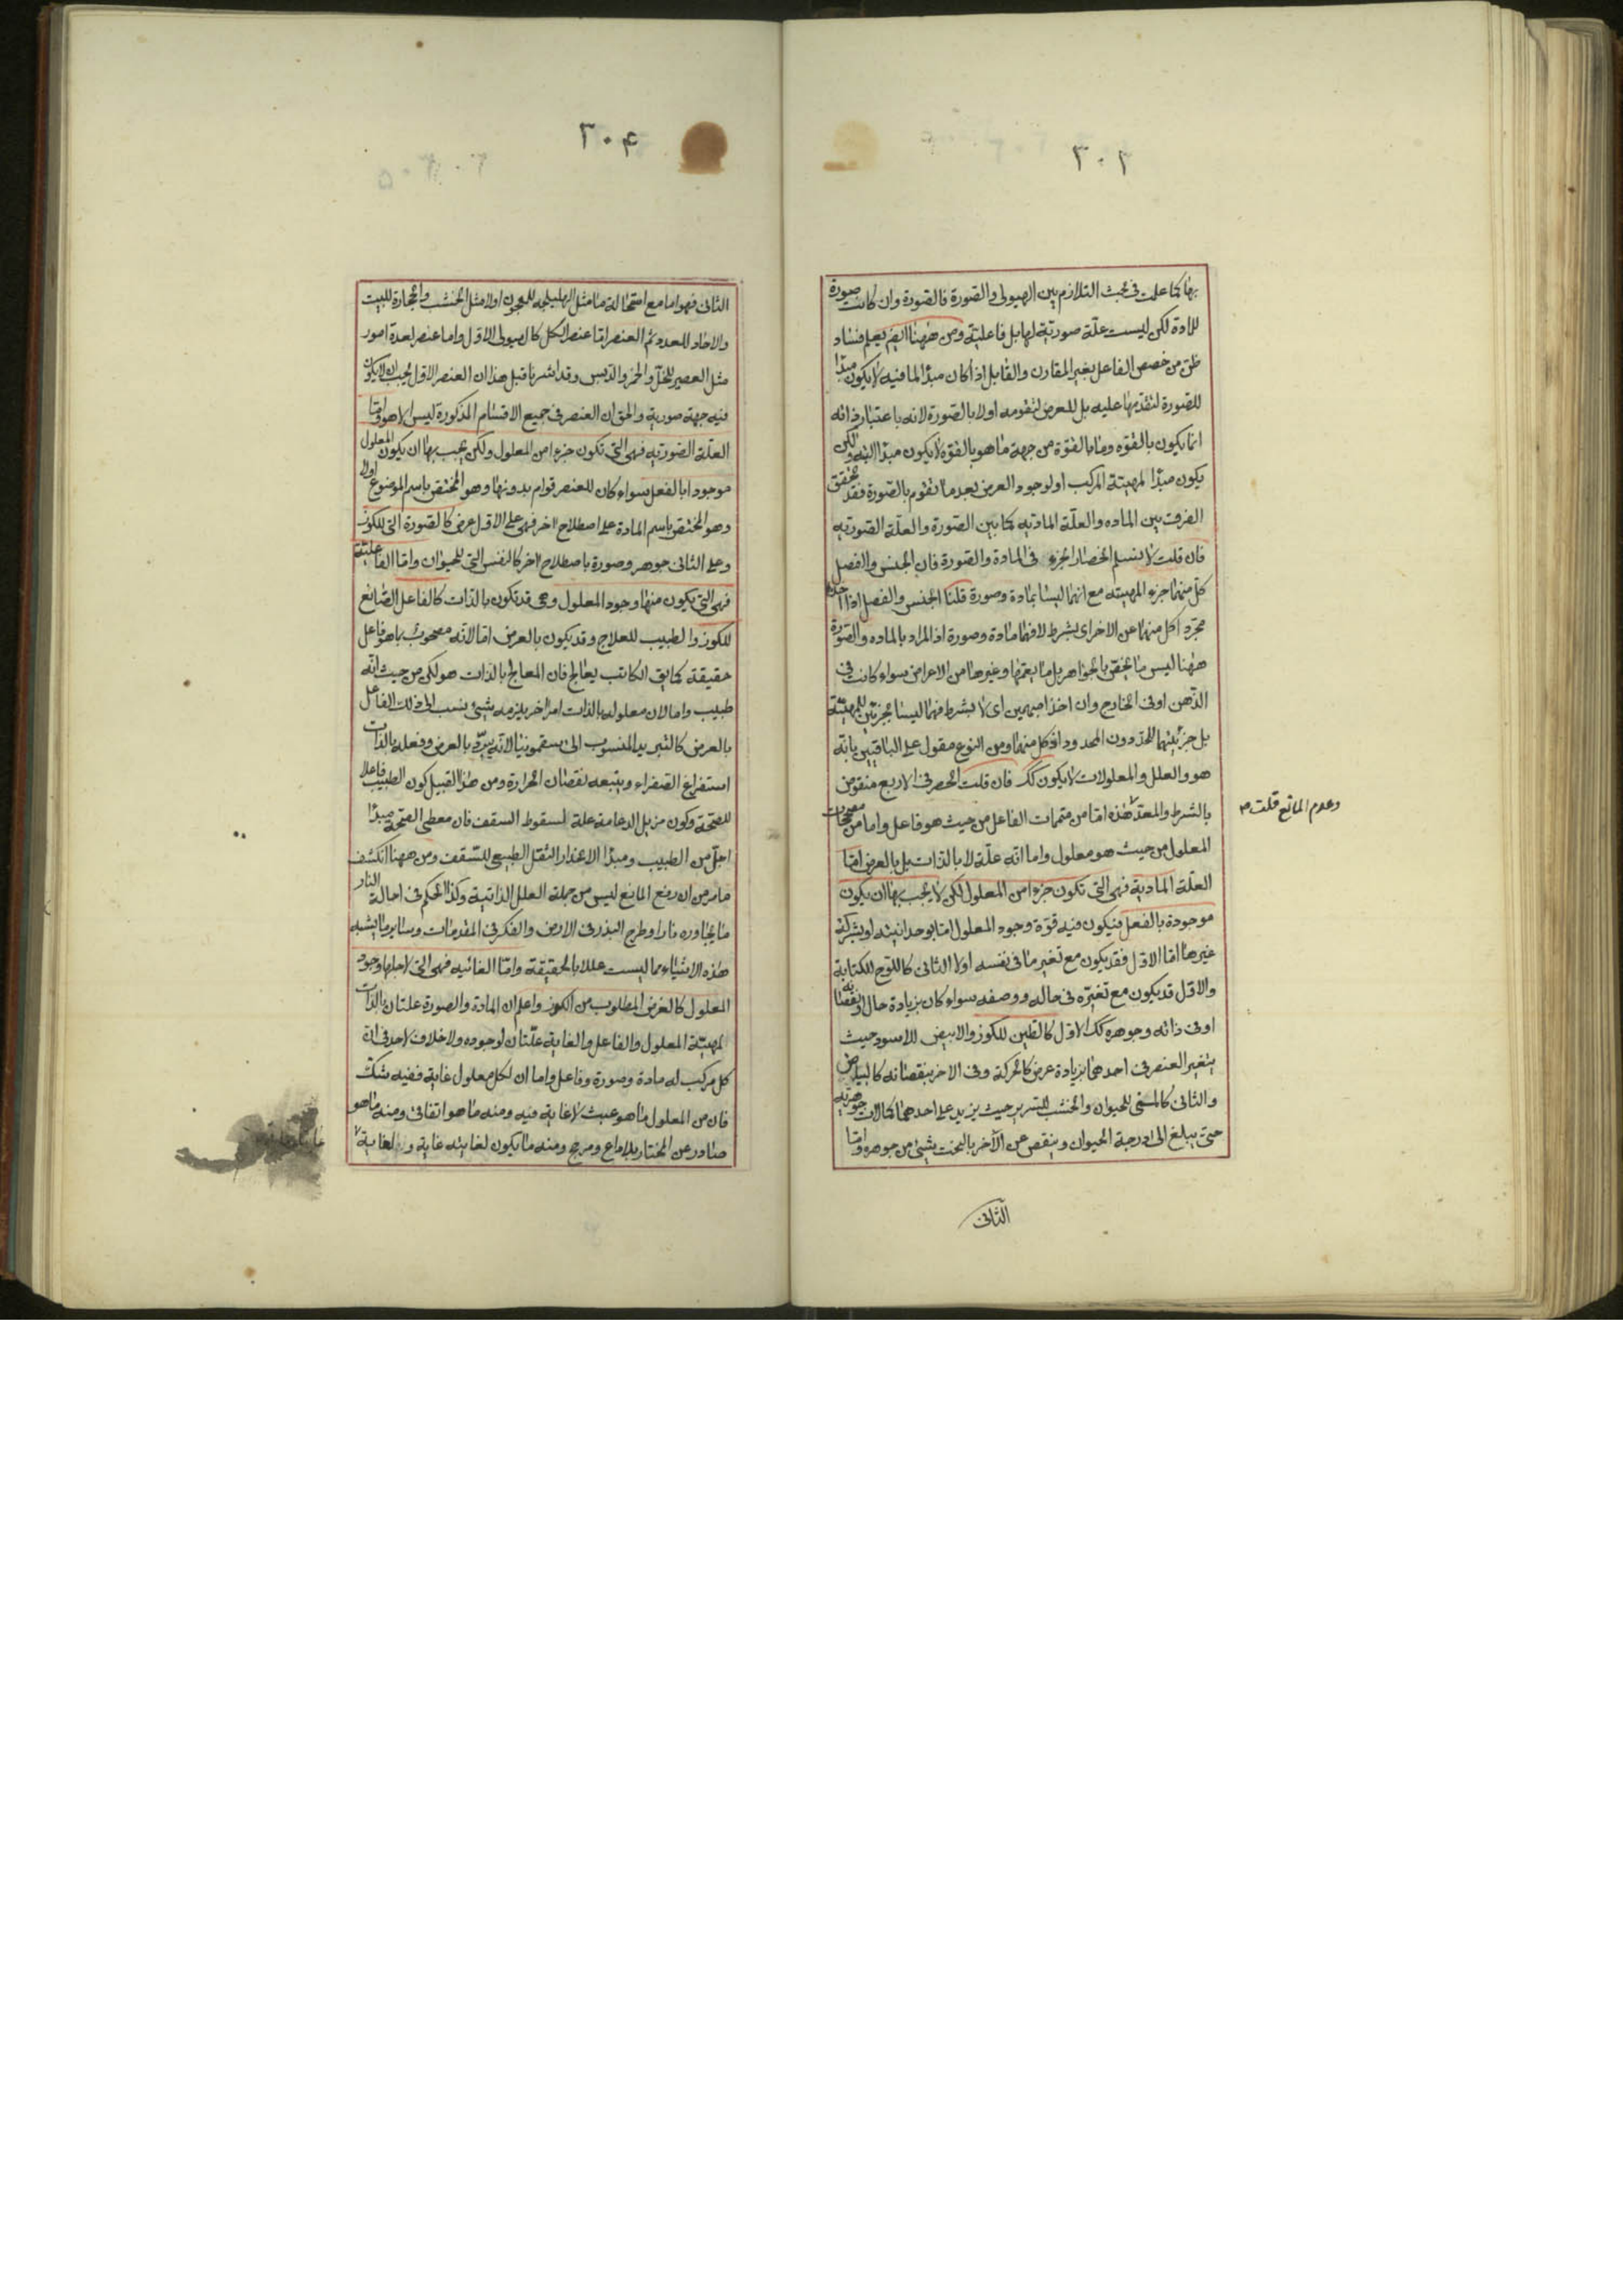 ٣٠٢
بها كما علمت فى بحث التلازم بين الهيولى و الصورة فالصورة وان كانت صورة
للمادة لكن ليست علّة صوريّة لها بل فاعلية ومن ههنا ايضا يعلم فساد
ظن من خصص الفاعل بغير المقارن والقابل اذا كان مبدأ لما فيه لا يكون مبدأ
للصورة لتقدمها عليه بل للعرض لتقومه اولا بالصورة لانه باعتبار ذاته
انما يكون بالقوه وما بالقوة من جهة ما هو بالقوه لا يكون مبدأ البته ولكن
يكون مبدأ لمهيّة المركب او لوجود العرض بعد ما تقوم بالصورة فقد تحقق
الفرق بين الماده والعلّة الماديّه كما بين الصورة والعلّة الصوريّه
فان قلت لا نسلم انحصار الجزء فى المادة والصورة فان الجنس والفصل
كلّ منهما جزء المهيّه مع انهما ليسا بمادة وصورة قلنا الجنس والفصل اذا اخذ
مجرّدا كل منهما عن الاخر اى بشرط لا فهما مادة وصورة اذ المراد بالماده والصورة
ههنا ليس ما يختص بالجواهر بل ما يعمّها وغيرها من الاعراض سواء كانت فى
الذهن او فى الخارج وان اخذا مبهمين اى لا بشرط فهما ليسا بجزئين للمهيّة
بل جزئيتهما للحدّ دون المحدود اذ كل منهما ومن النوع مقول على الباقيين بانّه
هو والعلل والمعلولات لا يكون كك فان قلت الحصر فى الاربع منقوض
بالشرط والمعدّ هذه اما من متممات الفاعل من حيث هو فاعل واما من مصححات
وعدم المانع قلت صح
المعلول من حيث هو معلول واما انّه علّة لا بالذات بل بالعرض امّا
العلّة الماديّة فهى التى تكون جزءا من المعلول لكن لا يجب بها ان يكون
موجودة بالفعل فيكون فيه قوّة وجود المعلول امّا بوحدانيته او بشركة
غيرها امّا الاوّل فقد يكون مع تغير ما فى نفسه اولا الثانى كاللوح للكتابة
والاوّل قد يكون مع تغيّره فى حاله ووصفه سواء كان بزيادة حال او نقصانه
او فى ذاته وجوهره كك الاوّل كالطين للكوز والابيض للاسود حيث
يتغير العنصر فى احدهما بزيادة عرض كالحركة وفى الاخر بنقصانه كالبياض
والثانى كالمنى للحيوان والخشب للسرير حيث يزيد على احدهما كمالات جوهريّه
حتى يبلغ الى درجة الحيوان وينقص عن الآخر بالنحت شيئ من جوهره وامّا
الثانى
٣٠۴
الثانى فهو اما مع استحالة ما مثل الهليلجه للمعجون اولا مثل الخشب والحجارة للبيت
والاحاد للعدد ثم العنصر امّا عنصر الكل كالهيولى الاوّل واما عنصر لعدة امور
مثل العصير للخلّ والخمر والدبس وقد اشرنا قبل هذا ان العنصر الاول يجب ان لا يكون
فيه جهة صورية والحق ان العنصر فى جميع الاقسام المذكورة ليس الا هو وامّا
العلّة الصوريّه فهى التى تكون جزءا من المعلول ولكن يجب بها ان يكون المعلول
موجودا بالفعل سواء كان للعنصر قوام بدونها وهو المختصّ باسم الموضوع اولا
وهو المختصّ باسم المادة على اصطلاح اخر فهى على الاوّل عرض كالصورة التى للكوز
وعلى الثانى جوهر وصورة باصطلاح آخر كالنفس التى للحيوان وامّا الفاعليّة
فهى التى يكون منها وجود المعلول وهى قد تكون بالذات كالفاعل الصانع
للكوز والطبيب للعلاج وقد يكون بالعرض امّا لانّه مصحوب بما هو فاعل
حقيقة كما يق الكاتب يعالج فان المعالج بالذات هو لكن من حيث انّه
طبيب واما لان معلوله بالذات امر اخر يلزمه شيئ ينسب الى ذلك الفاعل
بالعرض كالتبريد المنسوب الى سقمونيا لانّه يبرّد بالعرض وفعله بالذات
استفراغ الصفراء ويتبعه نقصان الحرارة ومن هذا القبيل كون الطبيب فاعلا
للصّحّة وكون مزيل الدعامة علة لسقوط السقف فان معطى الصّحّة مبدأ
اجلّ من الطبيب ومبدأ الانحدار الثقل الطبيعى للسّقف ومن ههنا انكشف
مامر من ان رفع المانع ليس من جملة العلل الذاتية وكذا الحكم فى احالة النار
ما يجاوره نارا وطرح البذر فى الارض والفكر فى المقدمات وساير ما يشبه
هذه الاشياء مما ليست عللا بالحقيقة وامّا الغائيه فهى التى لاجلها وجود
المعلول كالغرض المطلوب من الكوز واعلم ان المادة والصورة علتان بالذات
لمهيّة المعلول والفاعل والغاية علّتان لوجوده ولا خلاف لاحد فى انّ
كل مركب له مادة وصورة وفاعل واما ان لكل معلول غاية ففيه شكّ
فان من المعلول ما هو عبث لا غاية فيه ومنه ما هو اتفاقى ومنه ما هو
صادر عن المختار بلا داع ومرجح ومنه ما يكون لغايته غاية و لغاية